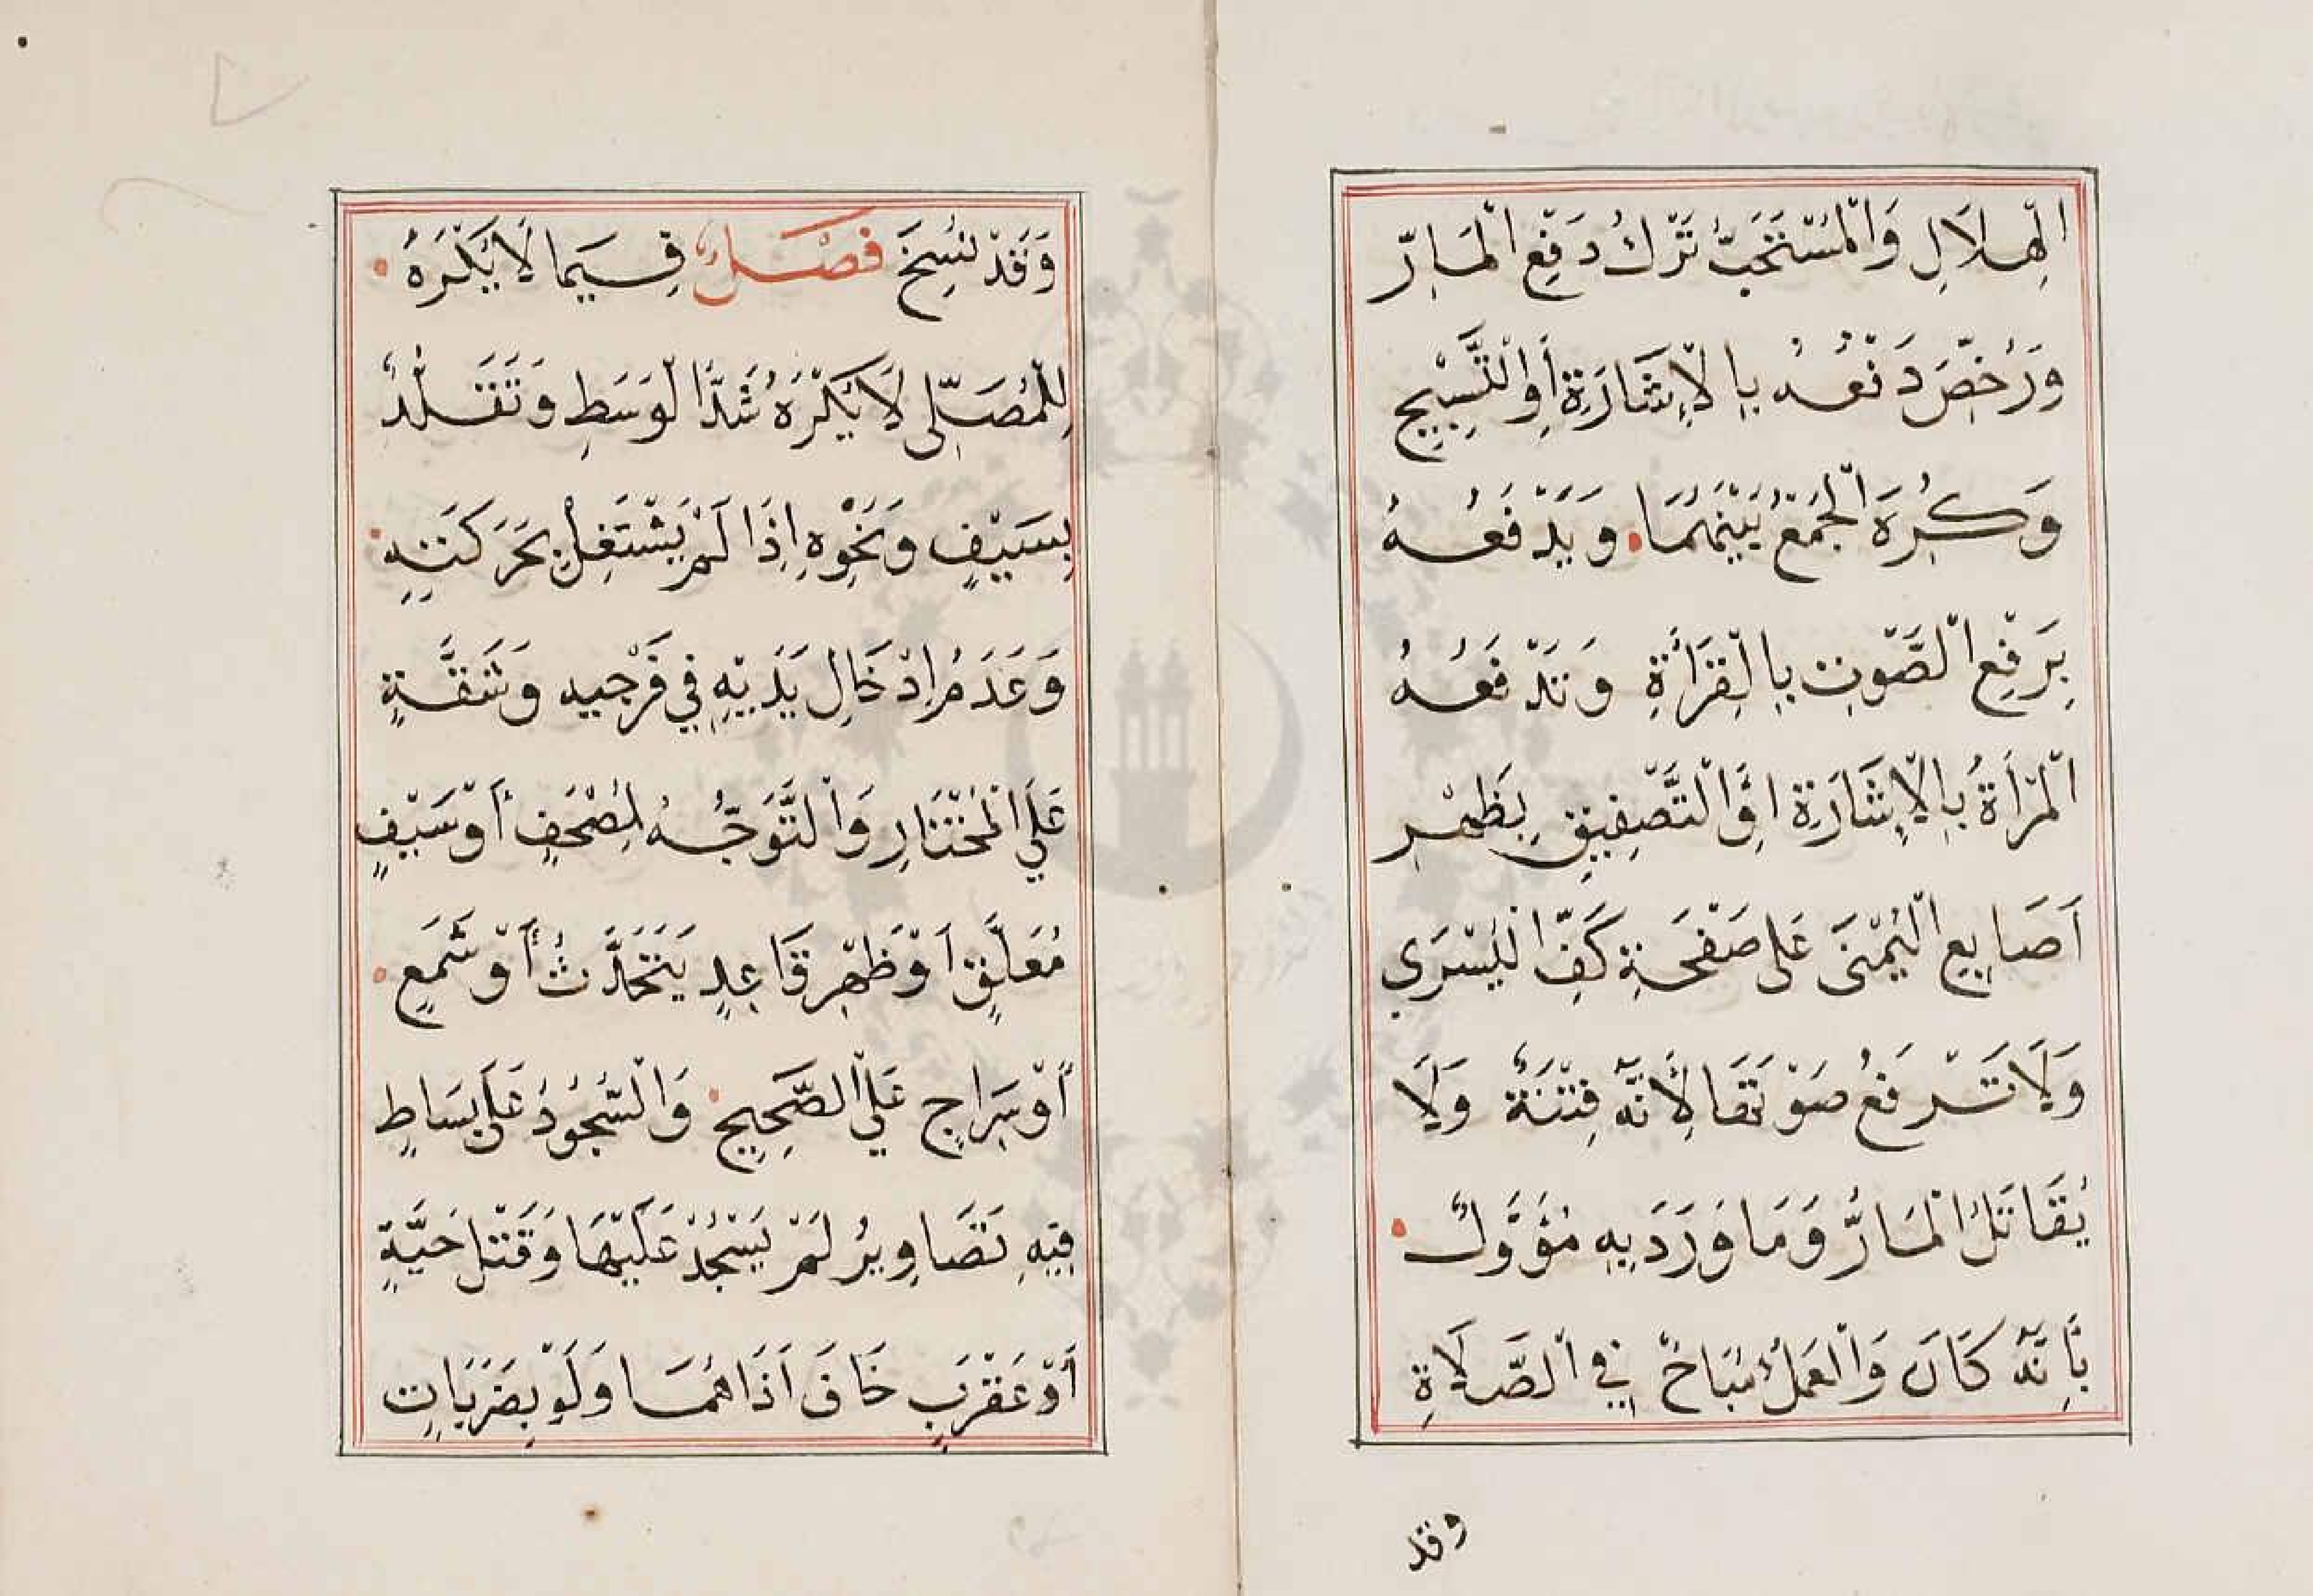 الْهِلَالِ وَالْمُسْتَحَبُّ تَرْكُ دَفْعِ الْمَارِّ
وَرُخِّصَ دَفْعُهُ بِالْإِشَارَةِ أَوِ التَّسْبِيحِ
وَكُرِهَ الْجَمْعُ بَيْنَهُمَا وَيَدْفَعُهُ
بِرَفْعِ الصَّوْتِ بِالْقِرَأَةِ وَتَدْفَعُهُ
الْمَرْأَةُ بِالْإِشَارَةِ اوِ التَّصْفِيقِ بِظَهْرِ
اَصَابِعِ الْيُمْنَى عَلى صَفْحَةِ كَفِّ الْيُسْرَي
وَلَا تَرْفَعُ صَوْتَهَا لِأَنَّهُ فِتْنَةٌ وَلَا
يُقَاتَلُ الْمَارُّ وَمَا وَرَدَ بِهِ مُؤَوَّلٌ
بِأَنَّهُ كَانَ وَالْعَمَلُ مُبَاحٌ فِي الصَّلَاةِ
وقد
وَقَدْ نُسِخَ فَصْلٌ فِيمَا لَا يُكْرَهُ
لِلْمُصَلِّى لَا يُكْرَهُ شَدُّ الْوَسَطِ وَتَقَلُّدٌ
بِسَيْفٍ وَنَحْوِهِ اِذَا لَمْ يَشْتَغِلْ بِحَرَكَتِهِ
وَعَدَمُ اِدْخَالِ يَدَيْهِ فِي فَرْجِيهِ وَشَقَّةٍ
عَلَي الْمُخْتَارِ وَالتَّوَجُّهُ لِمُصْحَفٍ أَوْ سَيْفٍ
مُعَلَّقٍ اَوْ ظَهْرِ قَاعِدٍ يَتَحَدَّثُ أَوْ شَمَعٍ
أَوْ سِرَاجٍ عَلَي الصَّحِيحِ وَالسُّجُودُ عَلَي بِسَاطٍ
فِيهِ تَصَاوِيرُ لَمْ يَسْجُدْ عَلَيْهَا وَقَتْلُ حَيَّةٍ
أَوْ عَقْرَبٍ خَافَ اَذَاهُمَا وَلَوْ بِضَرَبَاتٍ